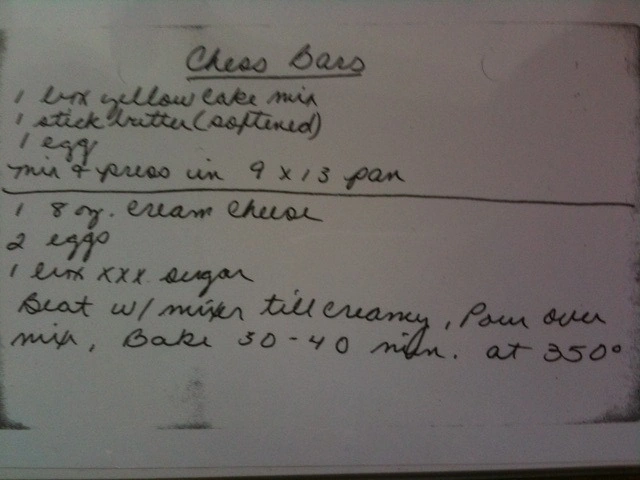 Chess Bars
1 box yellow cake mix
1 stick butter (softened)
1 egg
mix & press in 9 x 13 pan
1 8 oz. cream cheese
2 eggs
1 box xxx sugar
Beat w/ mixer till creamy, Pour over
mix, Bake 30-40 min. at 350°